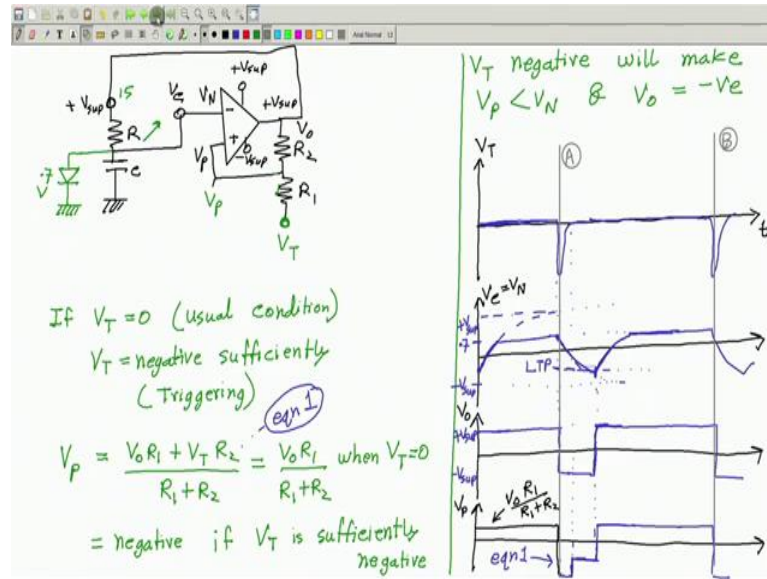 +Vsup 15
R
C
.7
V
Vc
VN
+Vsup
+Vsup
-
+
-Vsup
VP
VP
Vo
R2
R1
VT
If VT = 0 (usual condition)
VT = negative sufficiently
(Triggering)
eqn 1
VP = (Vo R1 + VT R2) / (R1 + R2) = Vo R1 / (R1 + R2) when VT=0
= negative if VT is sufficiently
negative
VT negative will make
VP < VN & Vo = -ve
A
B
VT
t
Vc = VN
+Vsup
.7
LTP
-Vsup
Vo
+Vsup
-Vsup
VP
Vo R1 / (R1+R2)
eqn 1 →